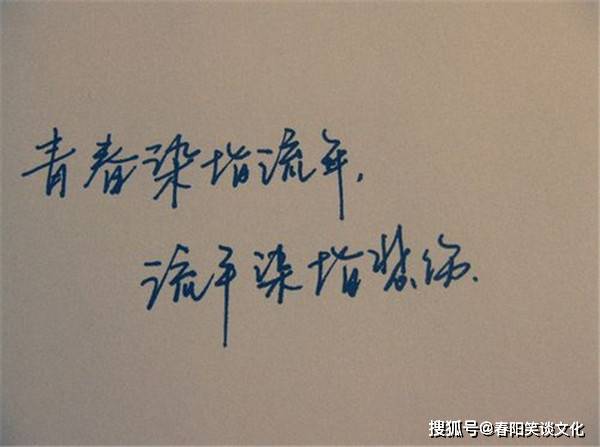 青春染指流年,
流年染指悲伤.
搜狐号@春阳笑谈文化